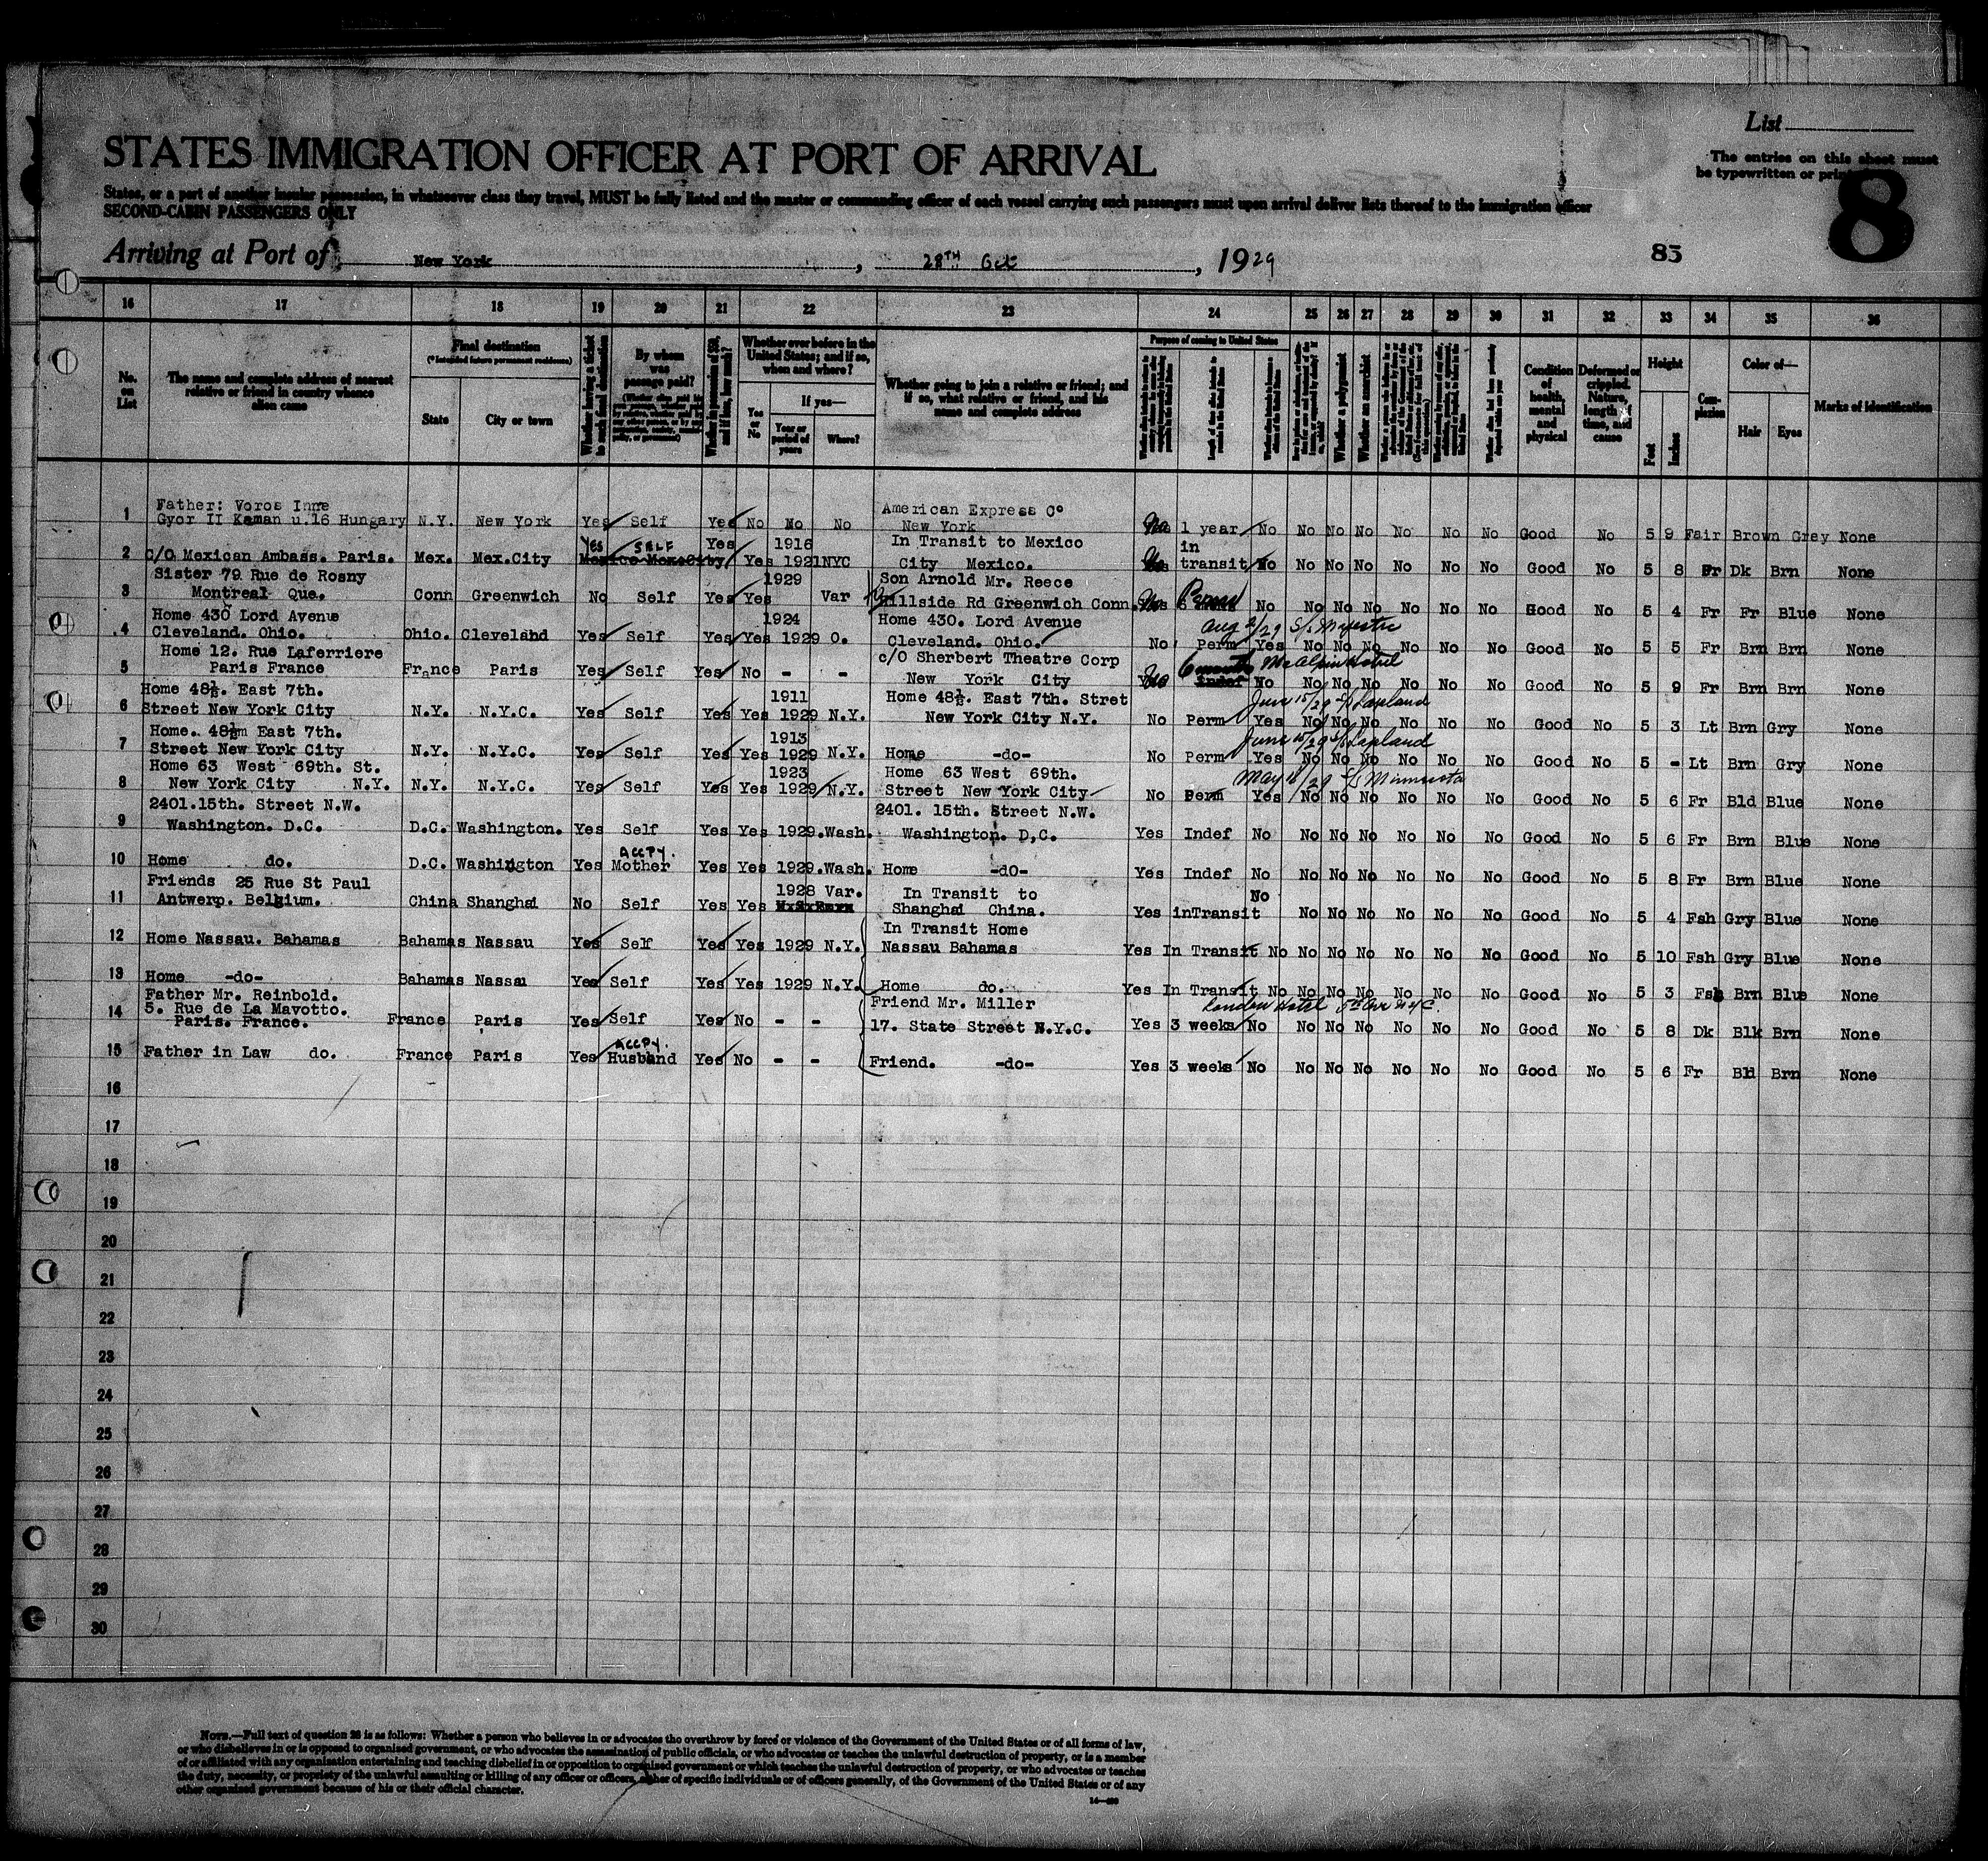 List
STATES IMMIGRATION OFFICER AT PORT OF ARRIVAL
The entries on this sheet must
be typewritten or
8
States, or a part of another insular possession, in whatsoever class they travel, MUST be fully listed and the master or commanding officer of each vessel carrying such passengers must upon arrival deliver lists thereof to the immigration officer
SECOND-CABIN PASSENGERS ONLY
Arriving at Port of New York, 28TH Oct, 1929
83
16 17 18 19 20 21 22 23 24 25 26 27 28 29 30 31 32 33 34 35 36
No. on List
The name and complete address of nearest relative or friend in country whence alien came
Final destination
(*Intended future permanent residence)
State
City or town
By whom was passage paid?
Whether ever before in the United States; and if so, when and where?
Yes or No
If yes—
Year or period of years
Where?
Whether going to join a relative or friend; and if so, what relative or friend, and his name and complete address
Purpose of coming to United States
Whether a polygamist
Whether an anarchist
Condition of health, mental and physical
Deformed or crippled. Nature, length of time, and cause
Height
Feet
Inches
Complexion
Color of—
Hair
Eyes
Marks of identification
1 Father: Voros Imre
Gyor II Kaman u.16 Hungary N.Y. New York Yes Self Yes No No No American Express Co
New York No 1 year No No No No No No No Good No 5 9 Fair Brown Grey None
2 C/O Mexican Ambass. Paris. Mex. Mex.City YES SELF Yes Yes 1916
1921 NYC In Transit to Mexico
City Mexico. in
transit No No No No No No No Good No 5 8 Fr Dk Brn None
3 Sister 79 Rue de Rosny
Montreal Que. Conn Greenwich No Self Yes Yes 1929 Var Son Arnold Mr. Reece
Hillside Rd Greenwich Conn. Perm No No No No No No No Good No 5 4 Fr Fr Blue None
4 Home 430 Lord Avenue
Cleveland. Ohio. Ohio. Cleveland Yes Self Yes Yes 1924
1929 O. Home 430. Lord Avenue
Cleveland. Ohio. Aug 2/29 S/s Majestic
No Perm Yes No No No No No No Good No 5 5 Fr Brn Brn None
5 Home 12. Rue Laferriere
Paris France France Paris Yes Self Yes No - - c/O Sherbert Theatre Corp
New York City McAlpin Hotel
6 months No No No No No No No Good No 5 9 Fr Brn Brn None
6 Home 48½. East 7th.
Street New York City N.Y. N.Y.C. Yes Self Yes Yes 1911
1929 N.Y. Home 48½. East 7th. Stret
New York City N.Y. June 15/29 S/s Lapland
No Perm Yes No No No No No No Good No 5 3 Lt Brn Gry None
7 Home. 48½m East 7th.
Street New York City N.Y. N.Y.C. Yes Self Yes Yes 1913
1929 N.Y. Home -do- June 15/29 S/s Lapland
No Perm Yes No No No No No No Good No 5 - Lt Brn Gry None
8 Home 63 West 69th. St.
New York City N.Y. N.Y. N.Y.C. Yes Self Yes Yes 1923
1929 N.Y. Home 63 West 69th.
Street New York City May 18/29 S/s Minnesota
No Perm Yes No No No No No No Good No 5 6 Fr Bld Blue None
9 2401.15th. Street N.W.
Washington. D.C. D.C. Washington. Yes Self Yes Yes 1929. Wash. 2401. 15th. Street N.W.
Washington. D,C. Yes Indef No No No No No No No Good No 5 6 Fr Brn Blue None
10 Home do. D.C. Washington Yes ACCPY.
Mother Yes Yes 1929. Wash. Home -dO- Yes Indef No No No No No No No Good No 5 8 Fr Brn Blue None
11 Friends 25 Rue St Paul
Antwerp. Belgium. China Shanghai No Self Yes Yes 1928 Var. In Transit to
Shanghai China. Yes inTransit No No No No No No No Good No 5 4 Fsh Gry Blue None
12 Home Nassau. Bahamas Bahamas Nassau Yes Self Yes Yes 1929 N.Y. In Transit Home
Nassau Bahamas Yes In Transit No No No No No No No Good No 5 10 Fsh Gry Blue None
13 Home -do- Bahamas Nassau Yes Self Yes Yes 1929 N.Y. Home do. Yes In Transit No No No No No No No Good No 5 3 Fsh Brn Blue None
14 Father Mr. Reinbold.
5. Rue de La Mavotto.
Paris. France. France Paris Yes Self Yes No - - Friend Mr. Miller
17. State Street N.Y.C. London Hotel 5th Ave NYC.
Yes 3 weeks No No No No No No No Good No 5 8 Dk Blk Brn None
15 Father in Law do. France Paris Yes ACCPY.
Husband Yes No - - Friend. -do- Yes 3 weeks No No No No No No No Good No 5 6 Fr Bld Brn None
16
17
18
19
20
21
22
23
24
25
26
27
28
29
30
NOTE.—Full text of question 28 is as follows: Whether a person who believes in or advocates the overthrow by force or violence of the Government of the United States or of all forms of law,
or who disbelieves in or is opposed to organized government, or who advocates the assassination of public officials, or who advocates or teaches the unlawful destruction of property, or is a member
of or affiliated with any organization entertaining and teaching disbelief in or opposition to organized government or which teaches the unlawful destruction of property, or who advocates or teaches
the duty, necessity, or propriety of the unlawful assaulting or killing of any officer or officers, either of specific individuals or of officers generally, of the Government of the United States or of any
other organized government because of his or their official character.